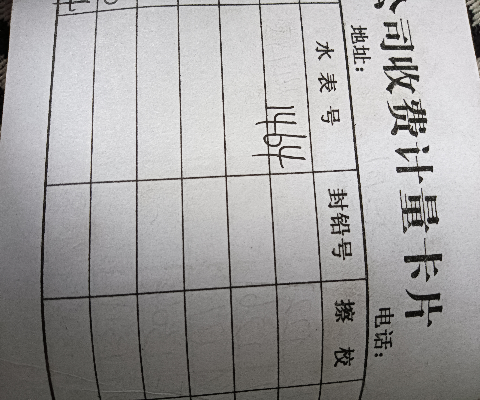 司收费计量卡片
地址： 电话：
水表号 封铅号 擦校
1464